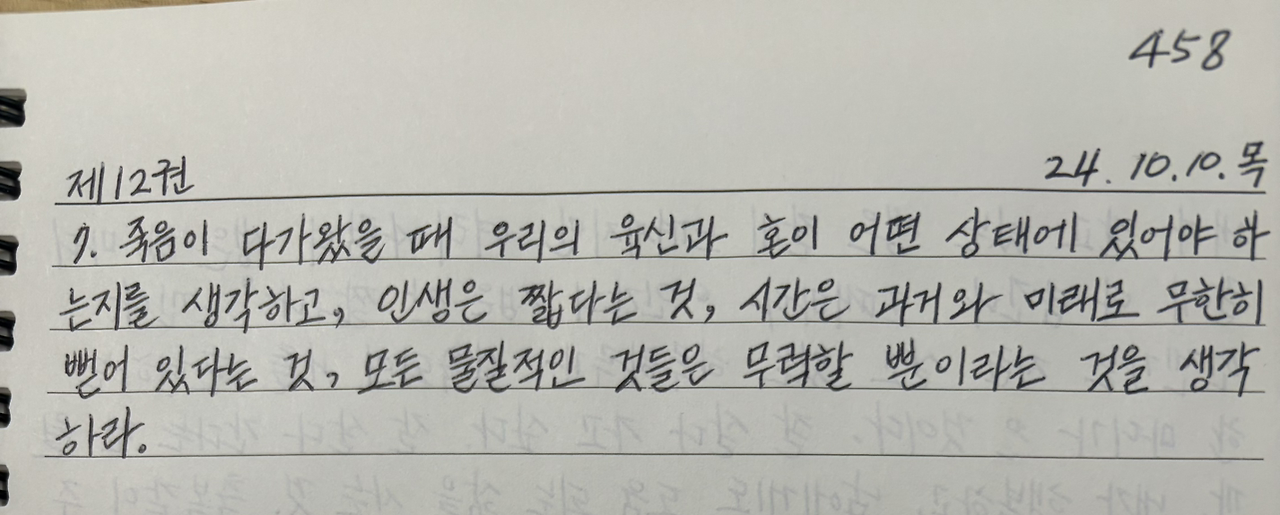 458
제12권 24.10.10.목
7. 죽음이 다가왔을 때 우리의 육신과 혼이 어떤 상태에 있어야 하
는지를 생각하고, 인생은 짧다는 것, 시간은 과거와 미래로 무한히
뻗어 있다는 것, 모든 물질적인 것들은 무력할 뿐이라는 것을 생각
하라.